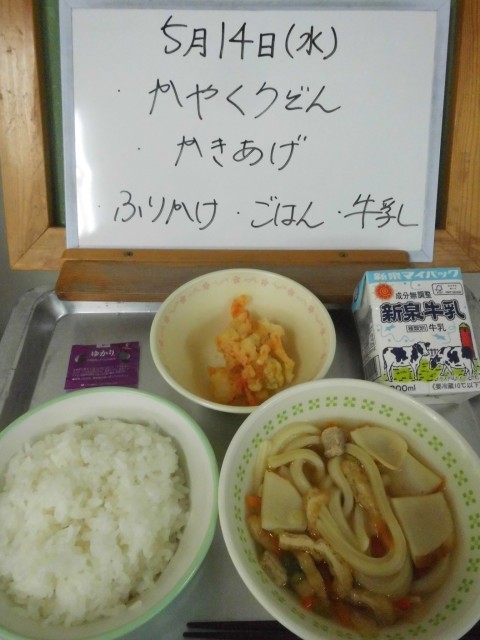 5月14日(水)
・かやくうどん
・かきあげ
ふりかけ・ごはん・牛乳
ゆかり
新泉マイパック
成分無調整
新泉牛乳
種類別 牛乳
200ml